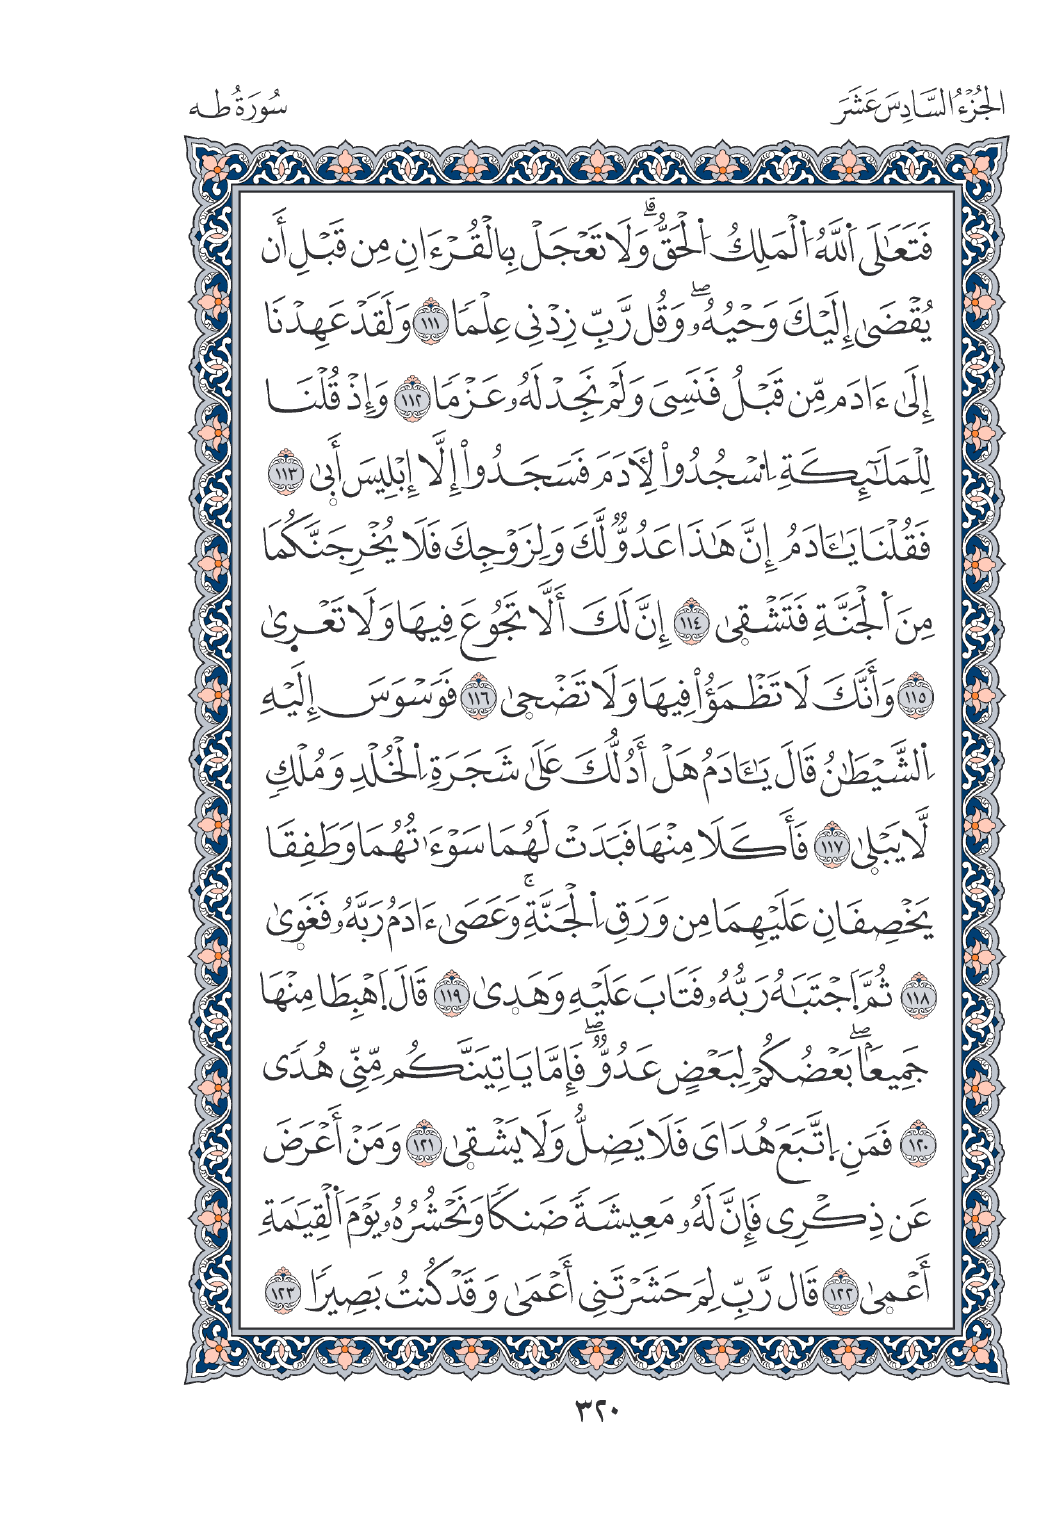 الجُزْءُ السَّادِسَ عَشَرَ
سُورَةُ طه
فَتَعَٰلَى اَ۬للَّهُ اُ۬لْمَلِكُ اُ۬لْحَقُّۗ وَلَا تَعْجَلْ بِالْقُرْءَانِ مِن قَبْلِ أَن
يُقْضَىٰ إِلَيْكَ وَحْيُهُۥۖ وَقُل رَّبِّ زِدْنِى عِلْمًا ١١١ وَلَقَدْ عَهِدْنَا
إِلَىٰ ءَادَمَ مِن قَبْلُ فَنَسِىَ وَلَمْ نَجِدْ لَهُۥ عَزْمًا ١١٢ وَإِذْ قُلْنَا
لِلْمَلَٰٓئِكَةِ اِ۟سْجُدُواْ لِأٓدَمَ فَسَجَدُواْ إِلَّا إِبْلِيسَ أَبىٰ ١١٣
فَقُلْنَا يَٰـَٔادَمُ إِنَّ هَٰذَا عَدُوٌّ لَّكَ وَلِزَوْجِكَ فَلَا يُخْرِجَنَّكُمَا
مِنَ اَ۬لْجَنَّةِ فَتَشْقىٰ ١١٤ إِنَّ لَكَ أَلَّا تَجُوعَ فِيهَا وَلَا تَعْرىٰ
١١٥ وَأَنَّكَ لَا تَظْمَؤُاْ فِيهَا وَلَا تَضْحىٰ ١١٦ فَوَسْوَسَ إِلَيْهِ
اِ۬لشَّيْطَٰنُ قَالَ يَٰـَٔادَمُ هَلْ أَدُلُّكَ عَلَىٰ شَجَرَةِ اِ۬لْخُلْدِ وَمُلْكٍ
لَّا يَبْلىٰ ١١٧ فَأَكَلَا مِنْهَا فَبَدَتْ لَهُمَا سَوْءَٰتُهُمَا وَطَفِقَا
يَخْصِفَانِ عَلَيْهِمَا مِن وَرَقِ اِ۬لْجَنَّةِۚ وَعَصَىٰ ءَادَمُ رَبَّهُۥ فَغَوىٰ
١١٨ ثُمَّ اَ۪جْتَبَٰهُ رَبُّهُۥ فَتَابَ عَلَيْهِ وَهَدىٰ ١١٩ قَالَ اَ۪هْبِطَا مِنْهَا
جَمِيعًۢاۖ بَعْضُكُمْ لِبَعْضٍ عَدُوٌّۖ فَإِمَّا يَاتِيَنَّكُم مِّنِّى هُدًى
١٢٠ فَمَنِ اِ۪تَّبَعَ هُدَاىَ فَلَا يَضِلُّ وَلَا يَشْقىٰ ١٢١ وَمَنْ أَعْرَضَ
عَن ذِكْرِى فَإِنَّ لَهُۥ مَعِيشَةً ضَنكًا وَنَحْشُرُهُۥ يَوْمَ اَ۬لْقِيَٰمَةِ
أَعْمىٰ ١٢٢ قَال رَّبِّ لِمَ حَشَرْتَنِى أَعْمَىٰ وَقَدْ كُنتُ بَصِيرًا ١٢٣
٣٢٠